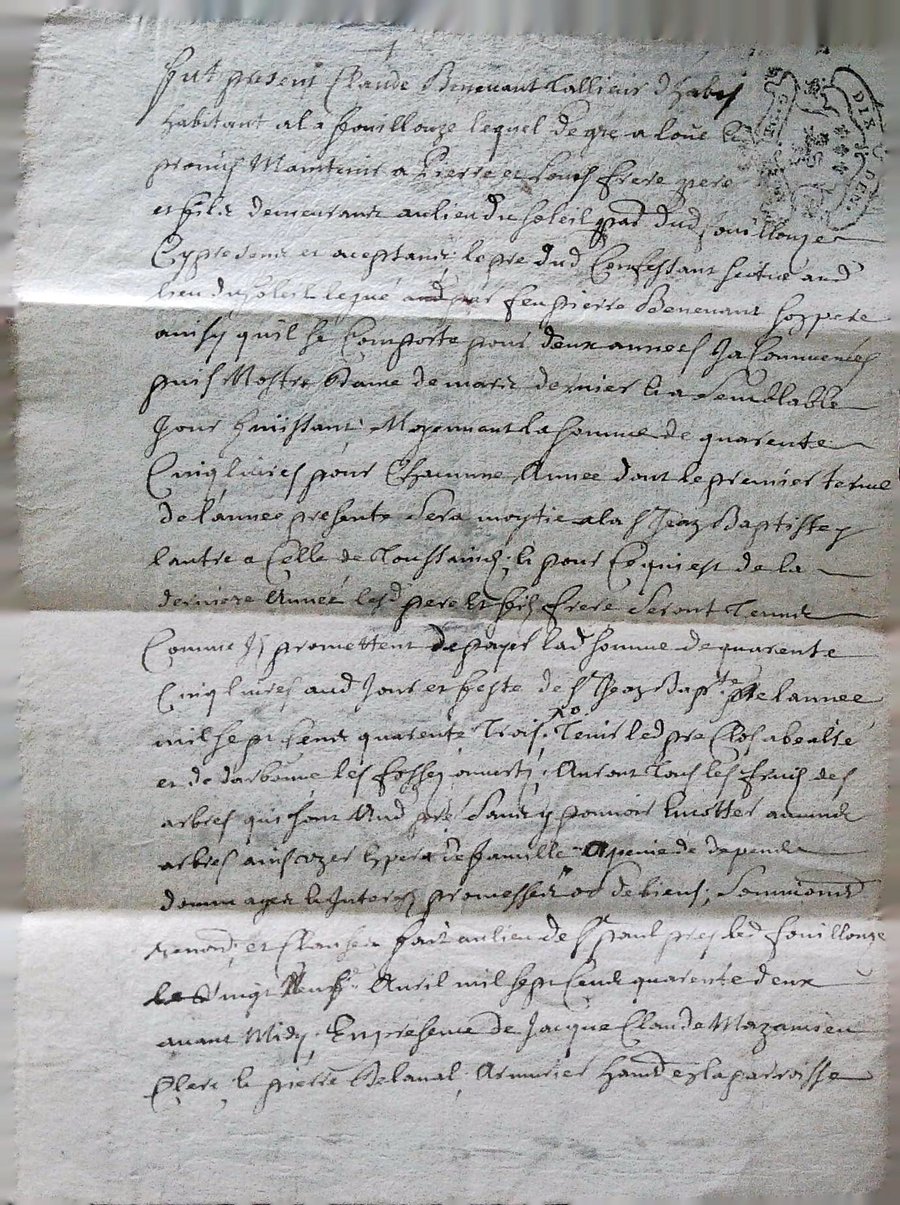 fut present Claude Benevant tallieur dhabis
habitant a la fouillouze lequel de gré a loué et
promis maintenir a Pierre et Louis frere pere
et fils demeurant au lieu du soleil pad dud fouillouze
Cy presents et aceptants le pre dud Confessant scitué aud
lieu du soleil legué aud par feu pierre Benevant son pere
ainsy quil se Comporte pour deux annees Ja commencées
puis Nostre Dame de mars dernier et a semblable
Jour finissant, Moyennant la somme de quarente
Cinq livres pour Chacunne Année dont le premier terme
de l'annee presente sera moytie a la st Jean Baptiste et
lautre a Celle de Toussaincts, et pour Ce qui est de la
derniere Année lesd pere et fils frere seront Tenus
Comme Ils promettent de payer lad somme de quarente
Cinq livres aud Jour et feste de st Jean Bapte de lannee
mil sept cents quarente Trois. Tenir led pre Clos
et de les fossez ouverts, Auront Tous les fruis des
arbres qui sont Aud pré sans y pouvoir aucuns
arbres ainsi pere de famille a peine de depens
dommages et Interets promesses de biens, soumions
renonds et Clauses fait au lieu de st paul pres led fouillouze
le Vingt Neuf Avril mil sept Cents quarente deux
avant Midy, En presence de Jacque Claude Mazancieu
Clerc et pierre Belaval, Armurier en la parroisse
DIX DEN.